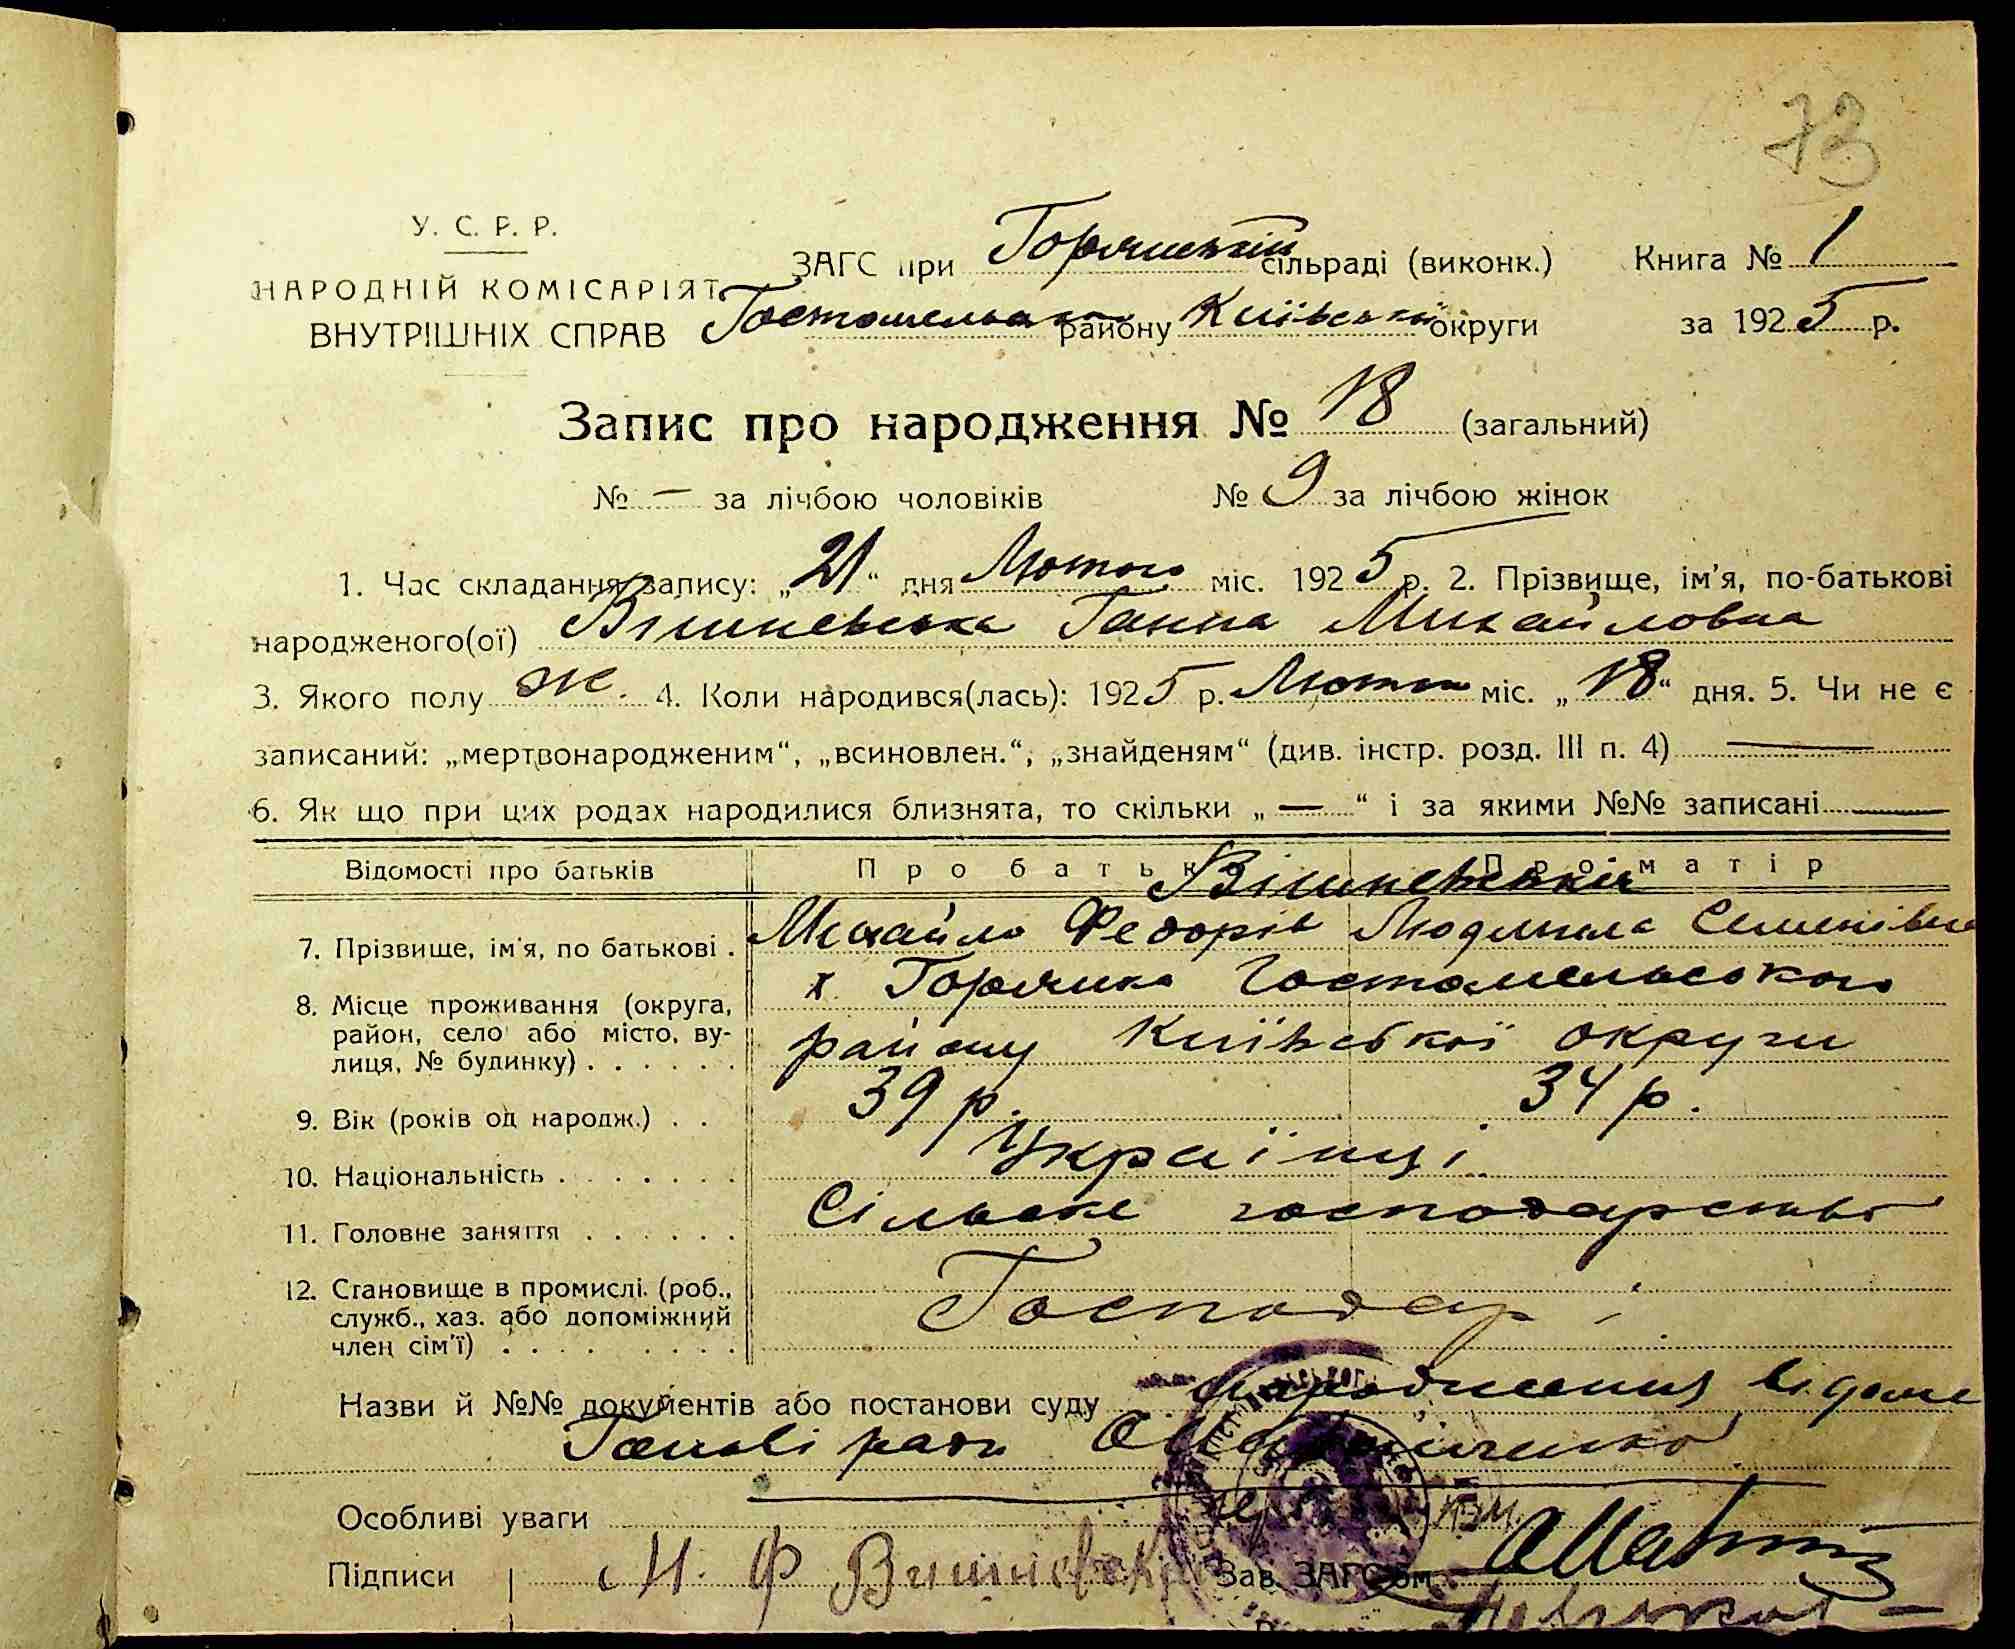 73
У. С. Р. Р.
НАРОДНІЙ КОМІСАРІЯТ
ВНУТРІШНІХ СПРАВ
ЗАГС при Горянській сільраді (виконк.) Книга № 1
Гостомельськ району Київської округи за 1925 р.
Запис про народження № 18 (загальний)
№ — за лічбою чоловіків № 9 за лічбою жінок
1. Час складання запису: „21“ дня Лютого міс. 1925 р. 2. Прізвище, ім'я, по-батькові
народженого(ої) Вішневська Ганна Михайловна
3. Якого полу Ж. 4. Коли народився(лась): 1925 р. Лютого міс. „18“ дня. 5. Чи не є
записаний: „мертвонародженим“, „всиновлен.“, „знайденям“ (див. інстр. розд. III п. 4) —
6. Як що при цих родах народилися близнята, то скільки „—“ і за якими №№ записані —
Відомості про батьків Про батька Про матір
Вішневські
7. Прізвище, ім'я, по батькові . Михайло Федорів Людмила Семенівна
8. Місце проживання (округа, район, село або місто, вулиця, № будинку) . . . . . . х. Горянка Гостомельського
району Київської округи
9. Вік (років од народж.) . . 39 р. 34 р.
10. Національність . . . . . . . Українці
11. Головне заняття . . . . . . Сільське господарство
12. Становище в промислі. (роб., служб., хаз. або допоміжний член сім'ї) . . . . . . . . Господарі
Назви й №№ документів або постанови суду народження відоме
Голові ради
Особливі уваги
Підписи М. Ф Вишневск Зав. ЗАГС'ом